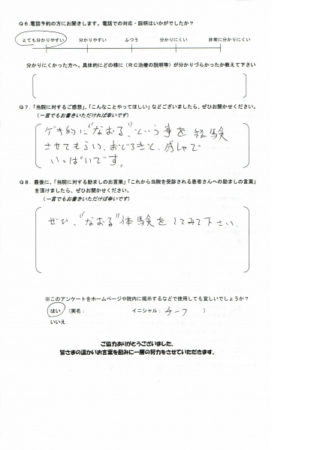 Q6.電話予約の方にお聞きします。電話での対応・説明はいかがでしたか?
とても分かりやすい 分かりやすい ふつう 分かりにくい 非常に分かりにくい
分かりにくかった方へ、具体的にどの様に(RC治療の説明等)が分かりづらかったか教えて下さい
Q7.「当院に対するご感想」、「こんなことやってほしい」などございましたら、ぜひお聞かせください。
(一言でもお書きいただければ幸いです)
ゲキ的に"なおる"という事を経験
させてもらい、おどろきと、感しゃで
いっぱいです。
Q8 最後に、「当院に対する励ましのお言葉」「これから当院を受診される患者さんへの励ましの言葉」
を頂けましたら、ぜひお聞かせください。
(一言でもお書きいただけば幸いです)
ぜひ、"なおる"体験をしてみて下さい
※このアンケートをホームページや院内に掲示するなどで使用しても宜しいでしょうか?
はい (実名: イニシャル: )
いいえ
ご協力ありがとうございました。
皆さまの温かいお言葉を励みに一層の努力をさせていただきます。